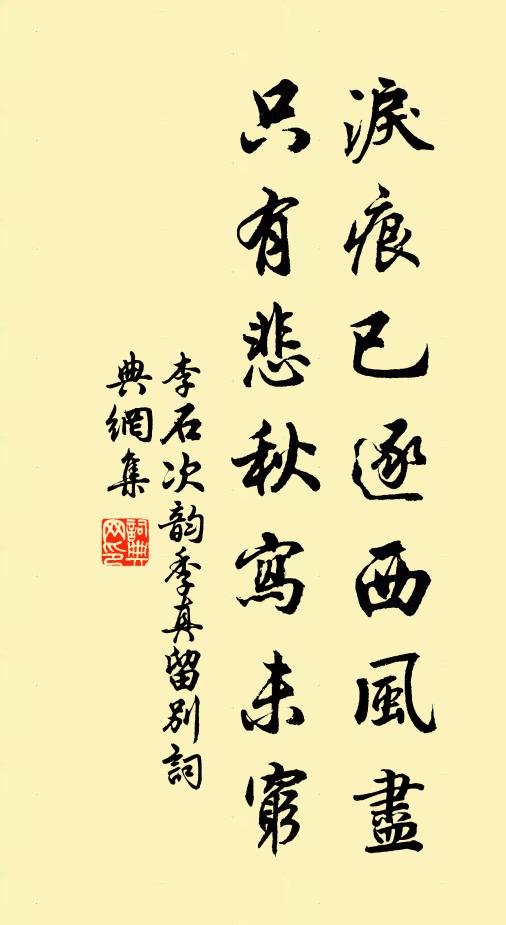 淚痕已逐西風盡
只有悲秋寫未窮
李石次韵季真留別詞
典網集
詞典網印